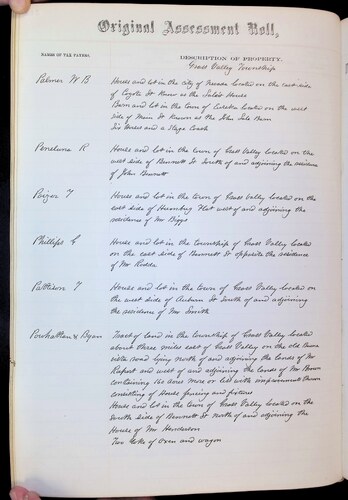 Original Assessment Roll,
NAMES OF TAX PAYERS.
DESCRIPTION OF PROPERTY.
Grass Valley Township
Palmer W B
House and lot in the city of Nevada located on the east side
of Coyote St Known as the House
Barn and lot in the town of located on the west
side of Main St Known as the John Barn
Six Horses and a Stage Coach
Penelune R
House and lot in the town of Grass Valley located on the
west side of Bennett St South of and adjoining the residence
of John Bennett
Paizer T
House and lot in the town of Grass Valley located on the
east side of Humbug Flat west of and adjoining the
residence of Mr Biggs
Phillips C
House and lot in the township of Grass Valley located
on the east side of Bennett St opposite the residence
of Mr Rodda
Pattison T
House and lot in the town of Grass Valley located on
the west side of Auburn St South of and adjoining
the residence of Mr Smith
Powhatten & Ryan
Tract of land in the Township of Grass Valley located
about three miles east of Grass Valley on the old
road lying north of and adjoining the lands of Mr
and west of and adjoining the lands of Mr Brown
containing 160 acres more or less with improvements thereon
consisting of House fencing and fixtures
House and lot in the town of Grass Valley located on the
South side of Bennett St north of and adjoining the
House of Mr Henderson
Two Yoke of Oxen and wagon